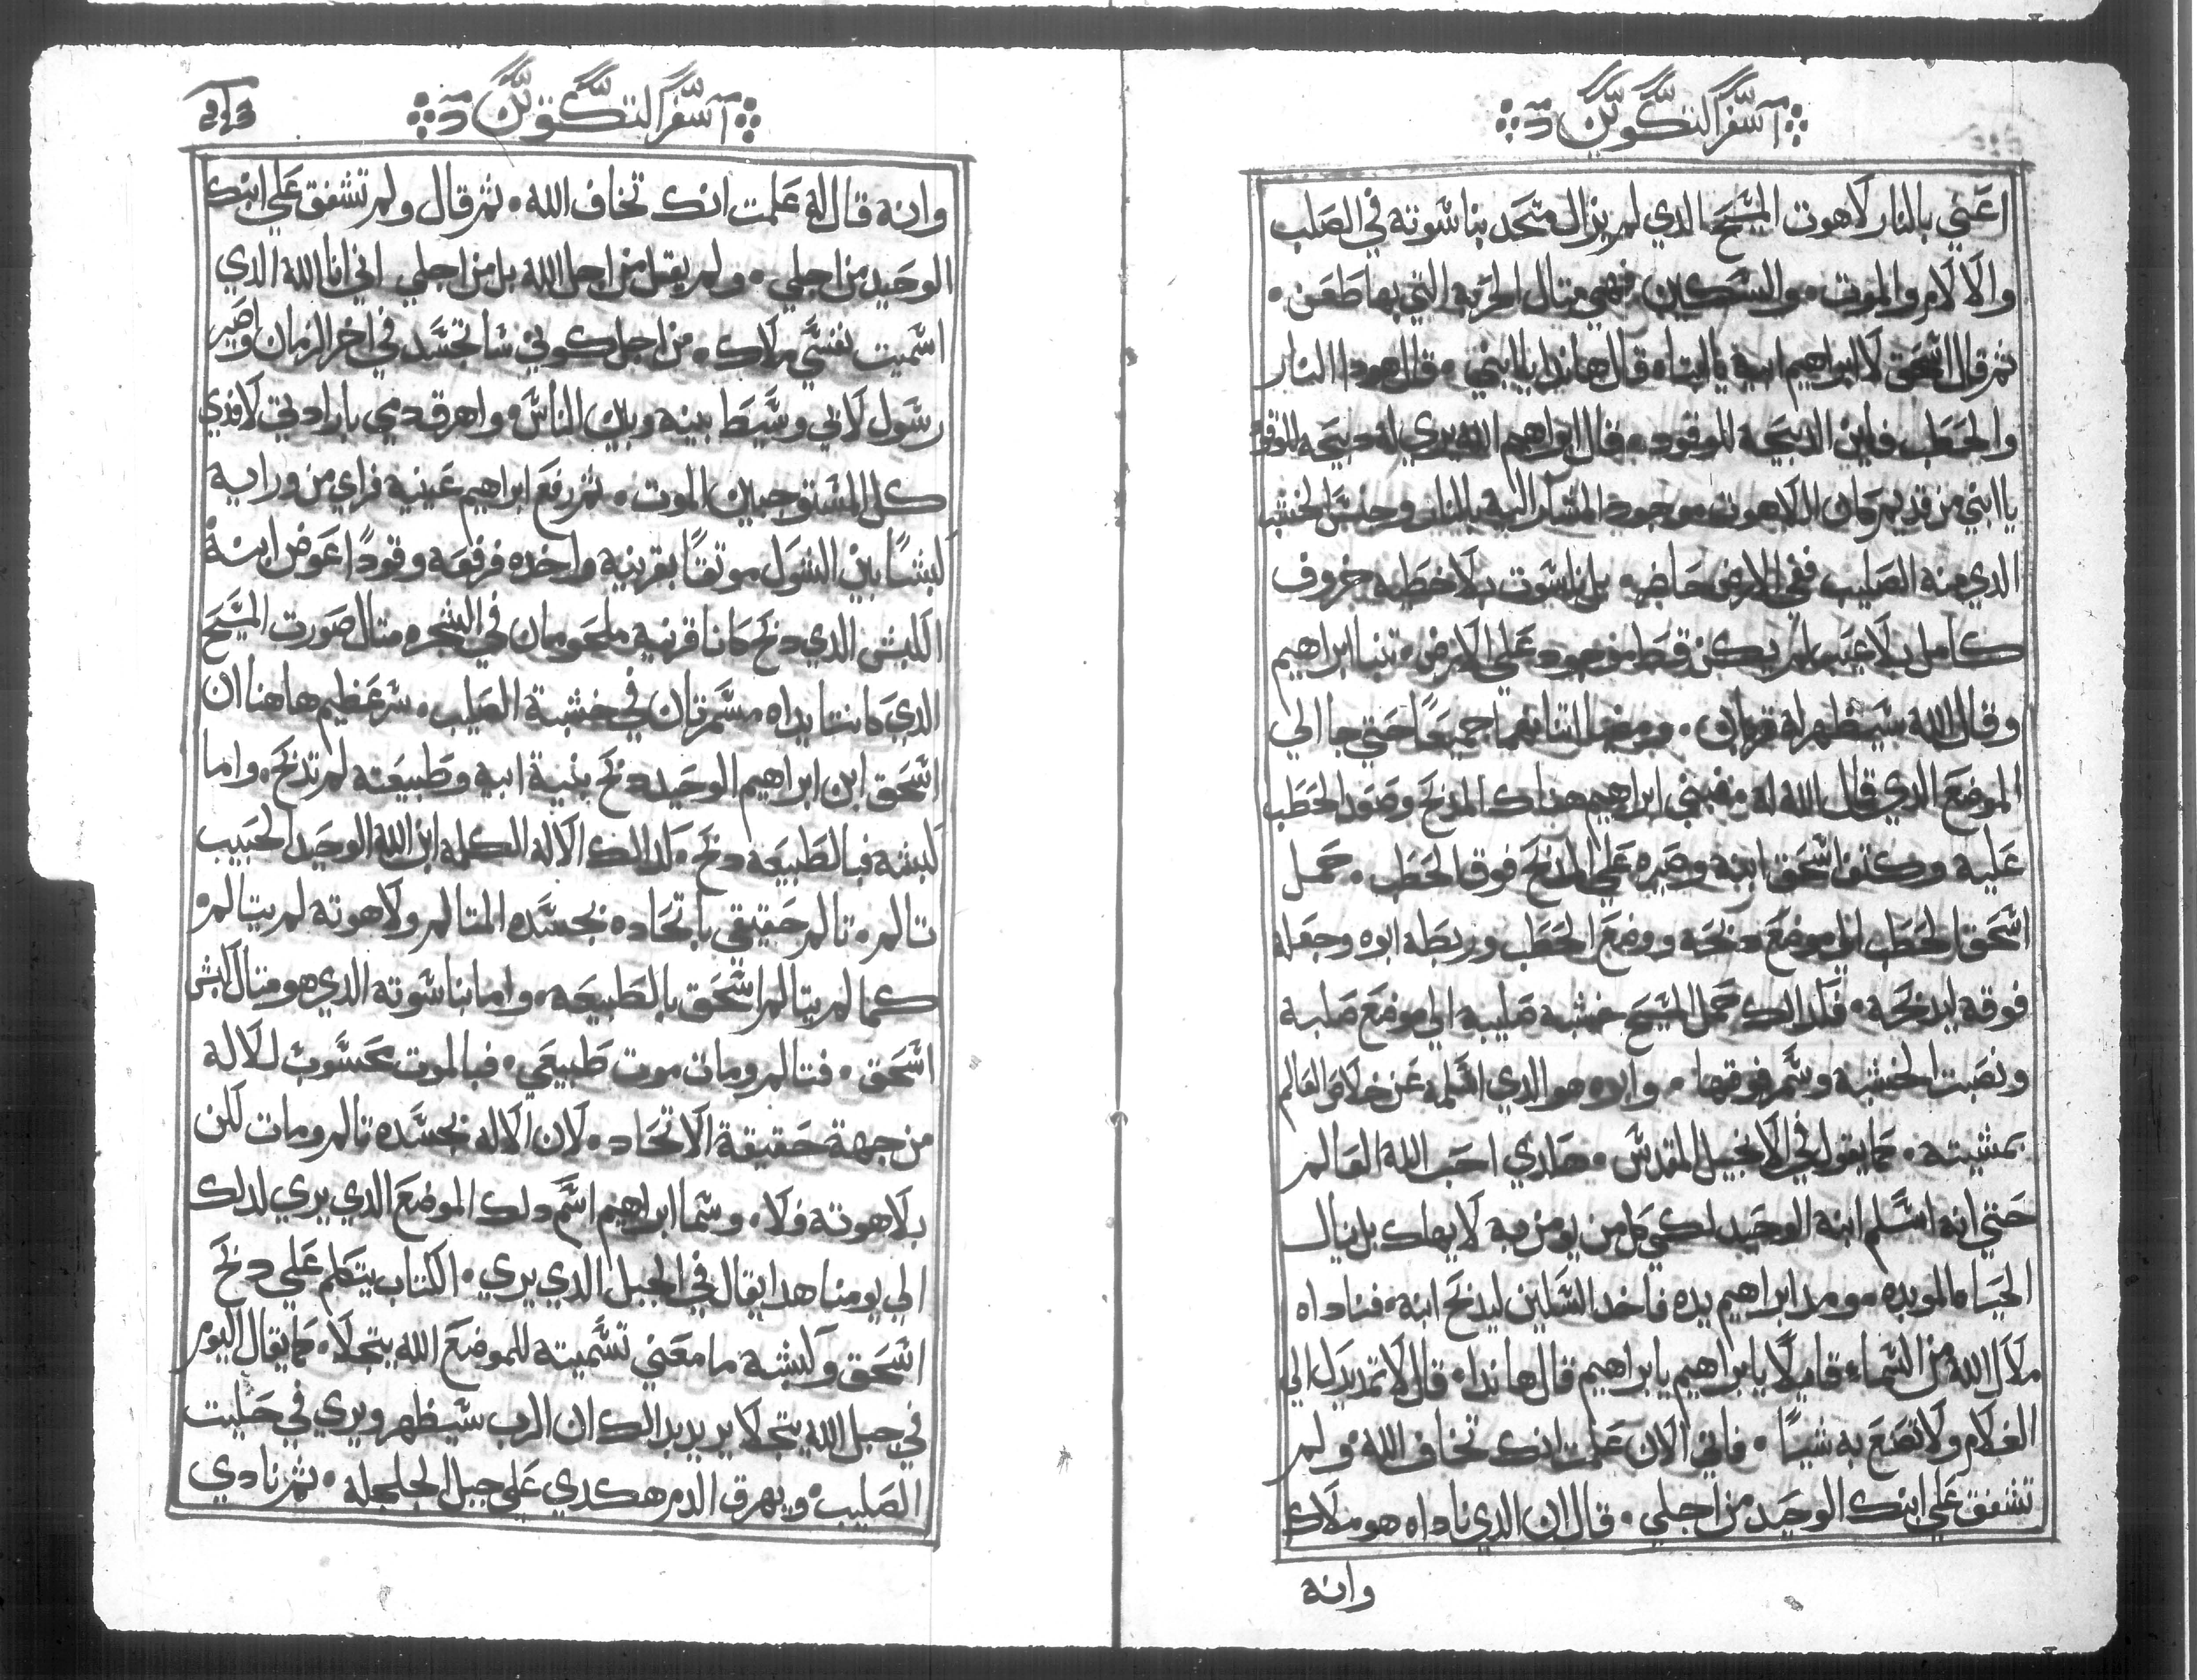 سفر التكوين
اعني بالنار لاهوت المسيح الدي لم يزال متحد بناسوته في الصلب
والالام والموت. والسكين فهي متال الحربه التي بها طعن.
تم قال اسحق لابراهيم ابيه يا ابتاه قال هاندا يا ابني. قال هودا النار
والحطب فاين الدبيحه للوقود. قال ابراهيم الله يري له دبيحه للوقود
يا ابني من قديم كان اللاهوت موجود المشار اليه بالنار وجنس الخشب
الدي منه الصليب ففي الارض حاضر. بل ناسوت بلا خطيه خروف
كامل بلا عيب لم يكن قط موجود علي الارض. تنبا ابراهيم
وقال الله سيظهر له قربان. ومضيا اتناهما جميعا حتي جا الي
الموضع الدي قال الله له فبني ابراهيم هناك المدبح وصور الحطب
عليه وكتف اسحق ابنه وصيره علي المدبح فوق الحطب. حمل
اسحق الحطب الي موضع دبحه ووضع الحطب وربطه ابوه وجعله
فوقه ليدبحه. فلدالك حمل المسيح خشبة صليبه الي موضع صلبه
ونصبت الخشبه وسمر فوقها. وابوه هو الدي اسلمه عن خلاص العالم
بمشيته. كما يقول في الانجيل المقدس. هكدي احب الله العالم
حتي انه اسلم ابنه الوحيد لكي كل من يومن به لا يهلك بل ينال
الحياه الموبده. ومد ابراهيم يده فاخد السكين ليدبح ابنه. فناداه
ملاك الله من السماء قايلا يا ابراهيم يا ابراهيم قال هاندا. قال لا تمد يدك الي
الغلام ولا تصنع به شيا. فاني الان علمت انك تخاف الله. ولم
تشفق علي ابنك الوحيد من اجلي. قال ان الدي ناداه هو ملاك
وانه
سفر التكوين
وانه قال له علمت انك تخاف الله. تم قال ولم تشفق علي ابنك
الوحيد من اجلي. ولم يقل من اجل الله بل من اجلي اني انا الله الدي
اسميت نفسي ملاك. من اجل كوني ساتجسد في اخر الزمان واصير
رسول لاني وسيط بينه وبين الناس. واهرق دمي بارادتي لافدي
كل المستوجبين الموت. تم رفع ابراهيم عينيه فراي من ورايه
كبشا بين الشوك موتقا بقرنيه واخده فرفعه وقودا عوض ابنه
الكبش الدي دبح كانا قرنيه ملحومان في الشجره متال صورت المسيح
الدي كانتا يداه مسمرتان في خشبة الصليب. سر عظيم هاهنا ان
اسحق ابن ابراهيم الوحيد دبح بنية ابيه وطبيعته لم تدبح. واما
كبشه فبالطبيعه دبح. لدالك الاله الكلمه ابن الله الوحيد الحبيب
تالم. تالم حقيقي باتحاده بجسده المتالم ولاهوته لم يتالم
كما لم يتالم اسحق بالطبيعه. واما ناسوته الدي هو متال كبش
اسحق. فتالم ومات موت طبيعي. فبالموت محسوب للاله
من جهة حقيقة الاتحاد. لان الاله بجسده تالم ومات لكن
بلاهوته فلا. وسما ابراهيم اسم دلك الموضع الدي يري لدلك
الي يومنا هدا يقال في الجبل الدي يري. الكتاب يتكلم علي دبح
اسحق وكبشه ما معني تسميته للموضع الله يتجلا. كما يقال اليوم
في جبل الله يتجلا يريد بدالك ان الرب سيظهر ويري في
الصليب. ويهرق الدم هكدي علي جبل الجلجله. تم نادي